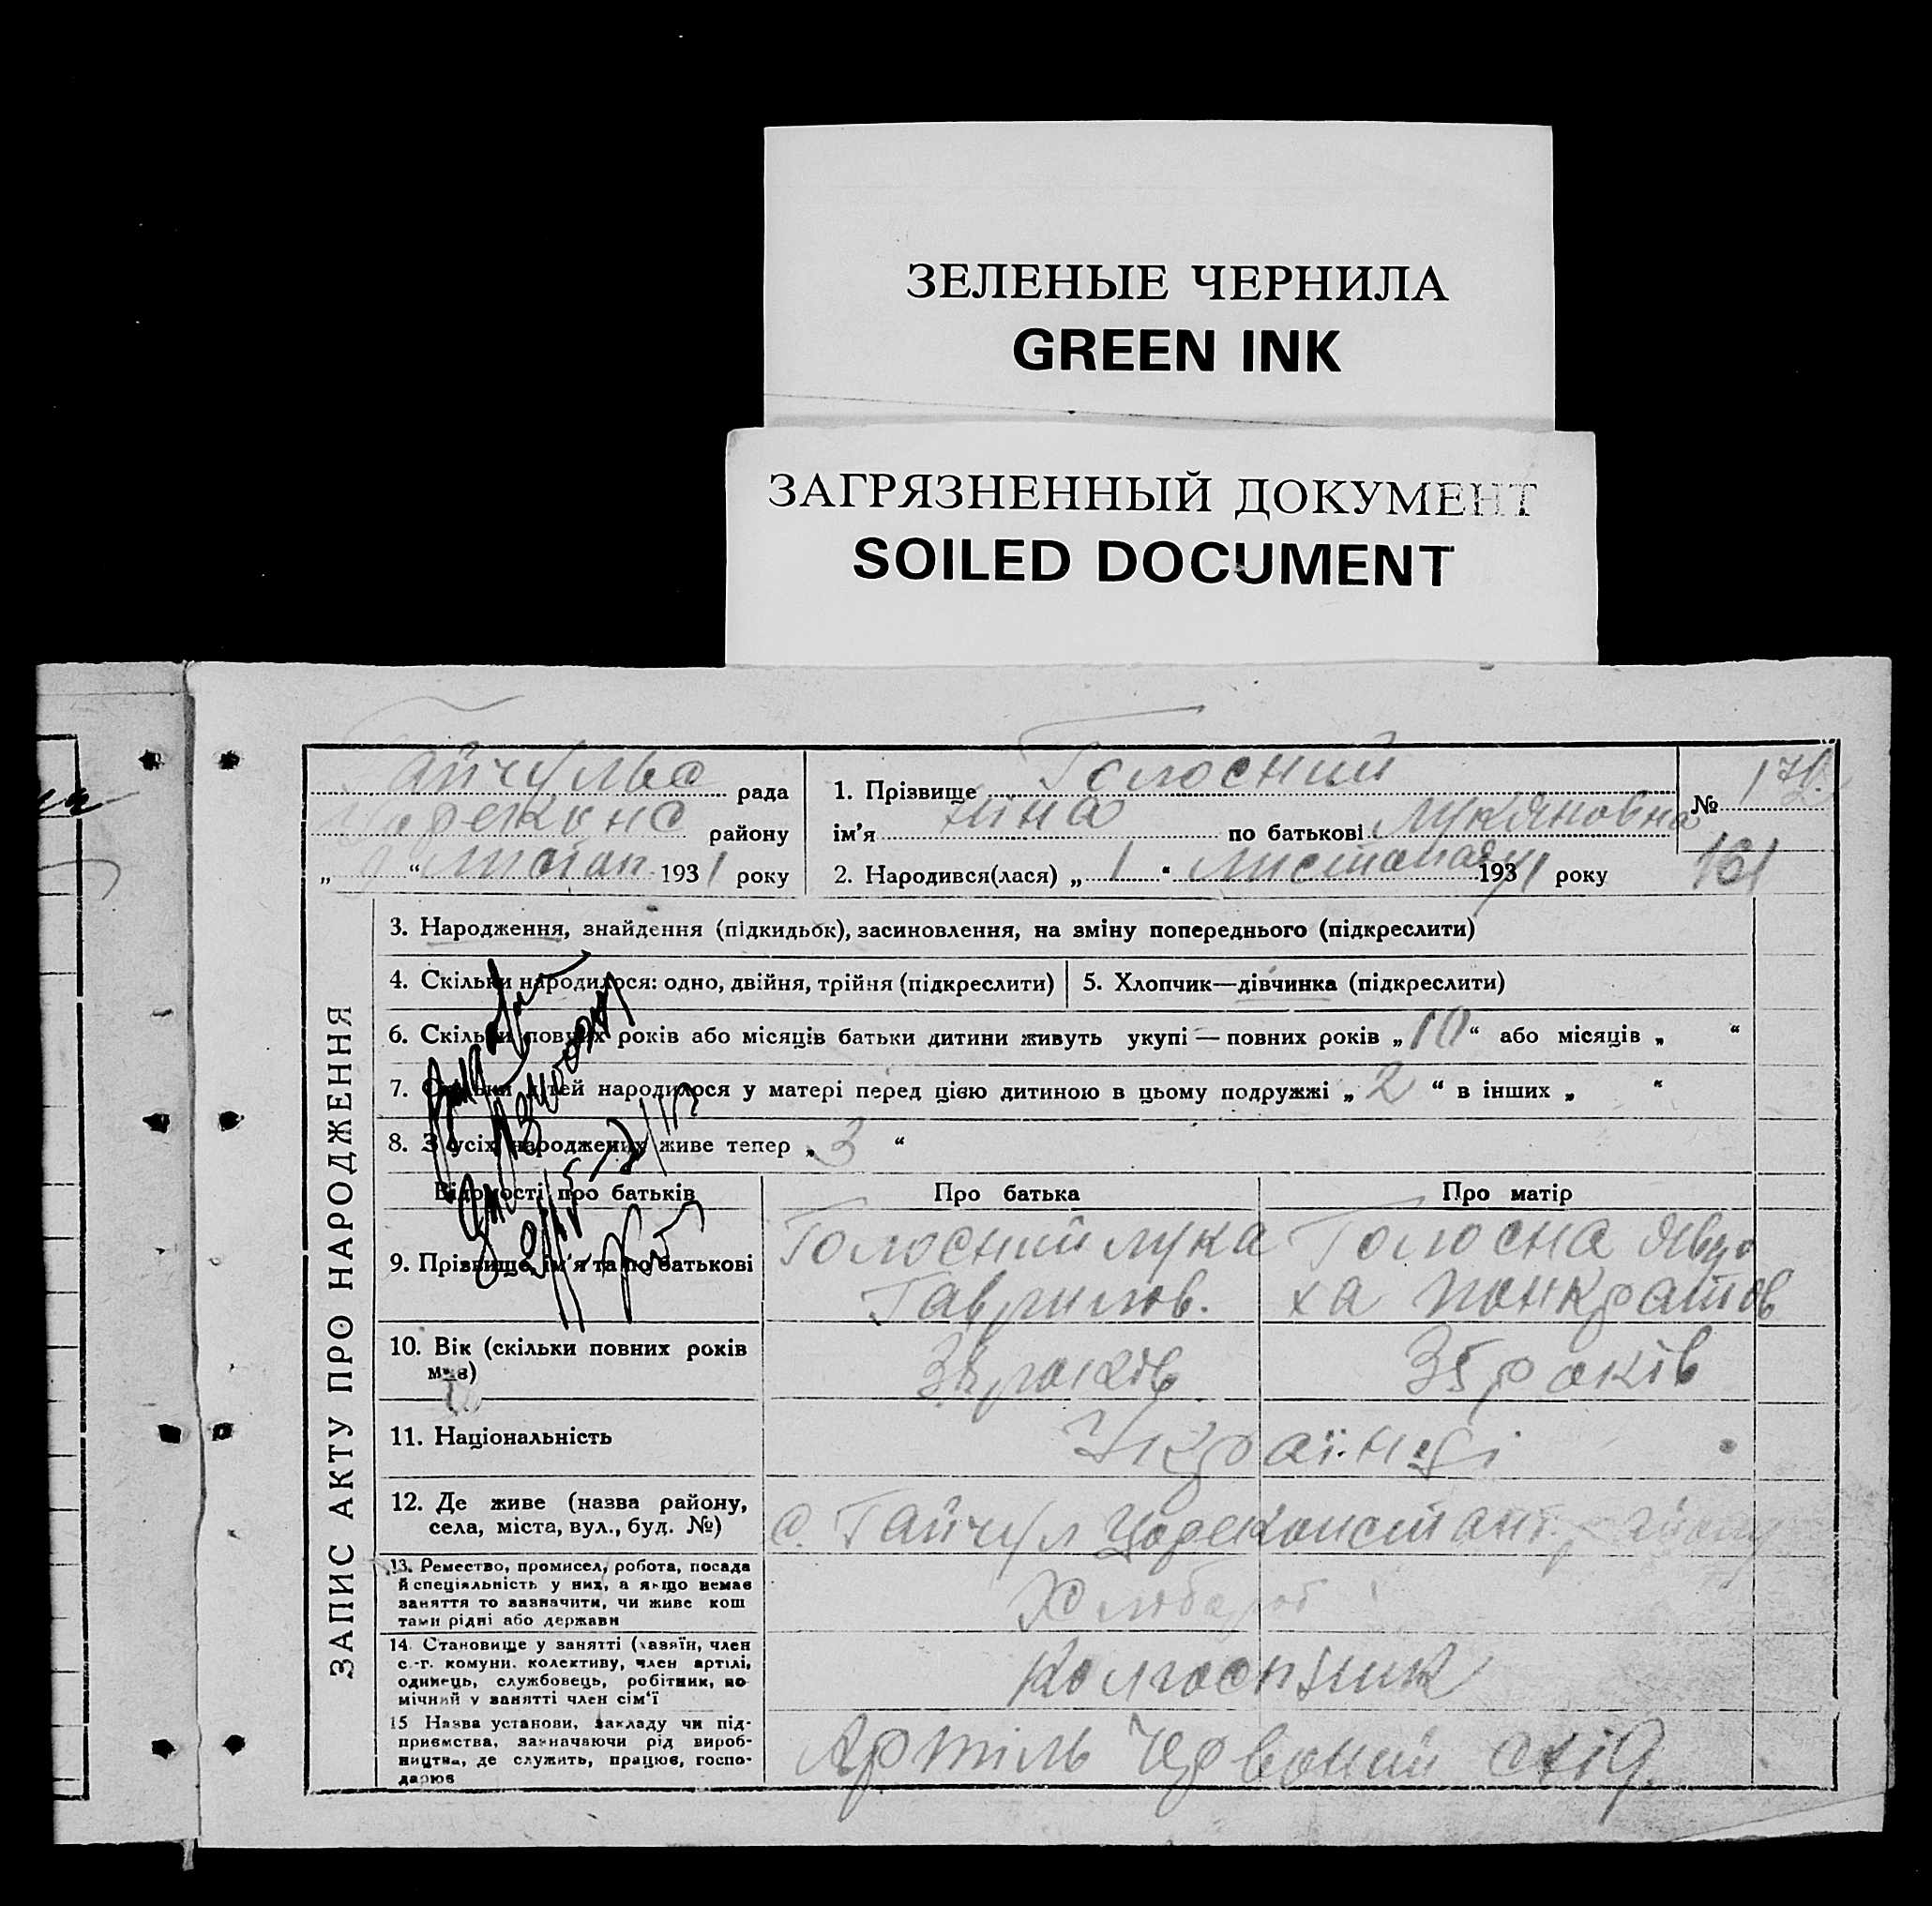 ЗЕЛЕНЫЕ ЧЕРНИЛА
GREEN INK
ЗАГРЯЗНЕННЫЙ ДОКУМЕНТ
SOILED DOCUMENT
ЗАПИС АКТУ ПРО НАРОДЖЕННЯ
рада
району
„ “ листоп. 1931 року
1. Прізвище Голосний
ім’я Ніна по батькові Лукяновна
2. Народився(лася) „ 1 “ листопаду 1931 року
№ 172
161
3. Народження, знайдення (підкидьок), засиновлення, на зміну попереднього (підкреслити)
4. Скільки народилося: одно, двійня, трійня (підкреслити)
5. Хлопчик—дівчинка (підкреслити)
6. Скільки повних років або місяців батьки дитини живуть укупі — повних років „ 10 “ або місяців „ “
7. Скільки дітей народилося у матері перед цією дитиною в цьому подружжі „ 2 “ в інших „ “
8. З усіх народжених живе тепер „ 3 “
Відомості про батьків
Про батька
Про матір
9. Прізвище, ім’я та по батькові
Голосний Лука
Гаврилов.
Голосна Явдо
ха Понкратов
10. Вік (скільки повних років
має)
років
35 років
11. Національність
Українці
12. Де живе (назва району,
села, міста, вул., буд. №)
с. Гайчул Цареконстант.
13. Ремество, промисел, робота, посада
й спеціяльність у них, а якщо немає
заняття то зазначити, чи живе кош
тами рідні або держави
14. Становище у занятті (хазяїн, член
с.-г. комуни, колективу, член артілі,
одинець, службовець, робітник, по
мічний у занятті член сім’ї
Колгоспник
15 Назва установи, закладу чи під-
приємства, зазначаючи рід вироб-
ництва, де служить, працює, госпо-
дарює
Артіль Червоний схід.